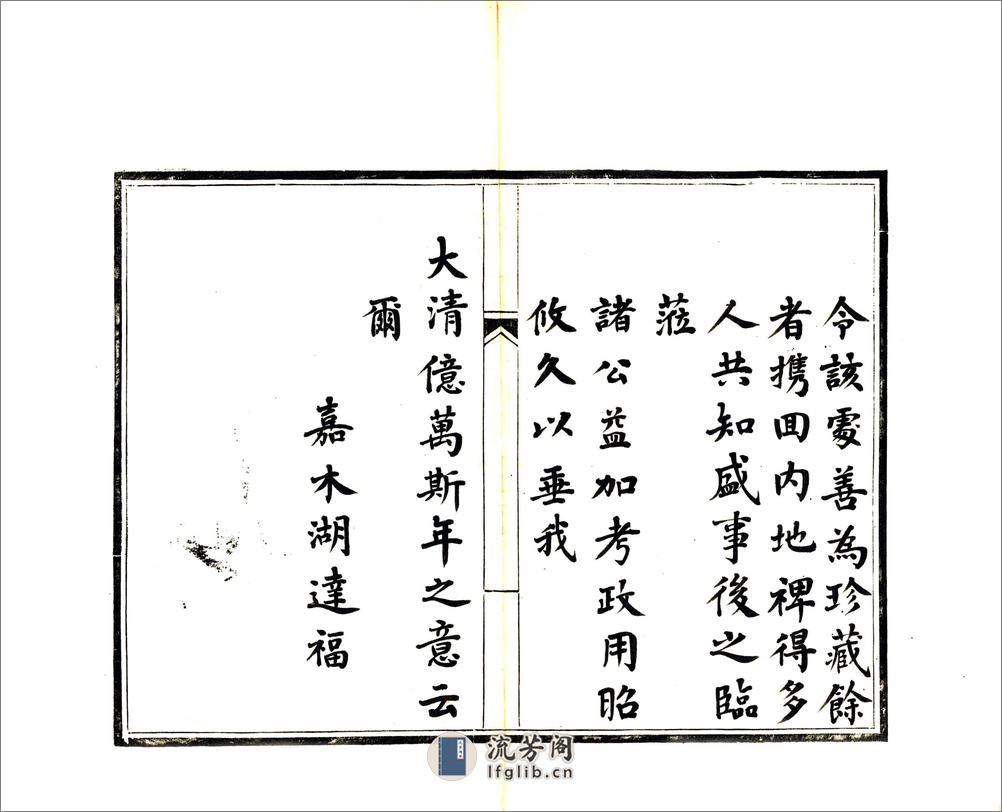 令該處善為珍藏餘
者携回内地裨得多
人共知盛事後之臨
蒞
諸公益加考政用昭
攸久以垂我
大清億萬斯年之意云
爾
嘉木湖達福
流芳阁
lfglib.cn